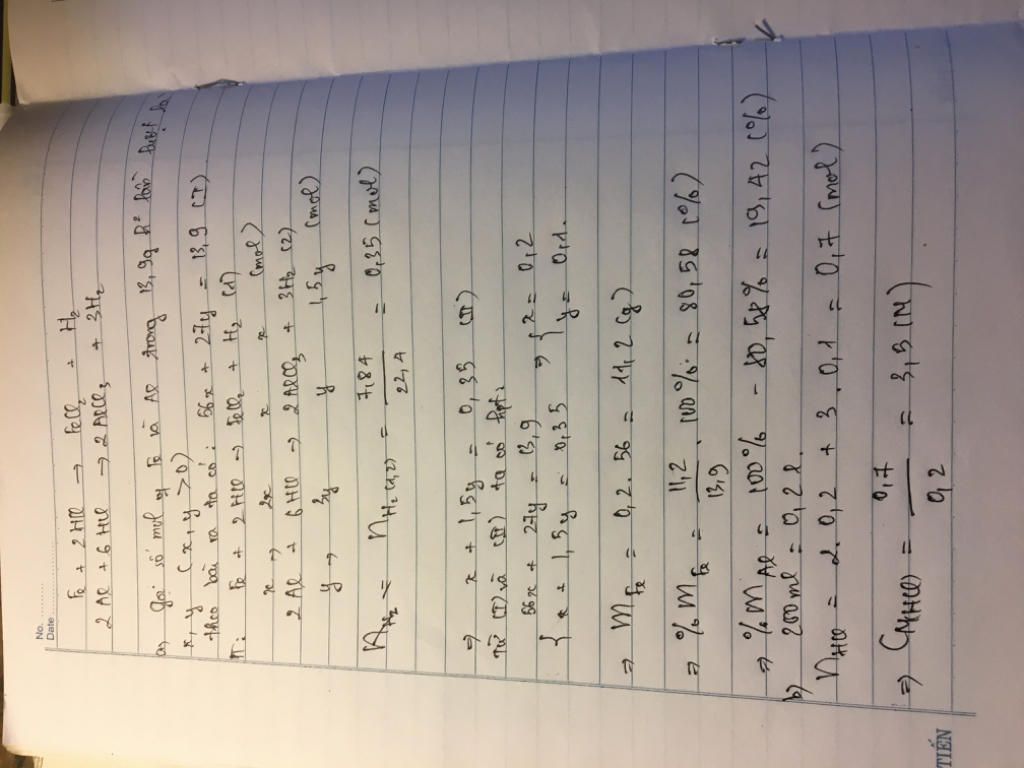 No.
Date
Fe + 2HCl → FeCl₂ + H₂
2Al + 6HCl → 2AlCl₃ + 3H₂
a, gọi số mol of Fe và Al trong 13,9g h² lần lượt là
x, y (x, y > 0)
theo bài ra ta có: 56x + 27y = 13,9 (I)
Fe + 2HCl → FeCl₂ + H₂ (1)
x → 2x x x (mol)
2Al + 6HCl → 2AlCl₃ + 3H₂ (2)
y → 3y y 1,5y (mol)
n_H₂ = n_H₂(1,2) = 7,84 / 22,4 = 0,35 (mol)
⇒ x + 1,5y = 0,35 (II)
Từ (I) và (II) ta có hpt:
{ 56x + 27y = 13,9
x + 1,5y = 0,35 ⇒ { x = 0,2
y = 0,1.
⇒ m_Fe = 0,2 . 56 = 11,2 (g)
⇒ % m_Fe = 11,2 / 13,9 . 100% = 80,58 (%)
⇒ % m_Al = 100% - 80,58% = 19,42 (%)
b) 200ml = 0,2 l.
n_HCl = 2. 0,2 + 3 . 0,1 = 0,7 (mol)
⇒ C_M(HCl) = 0,7 / 0,2 = 3,5 (M)
TIẾN